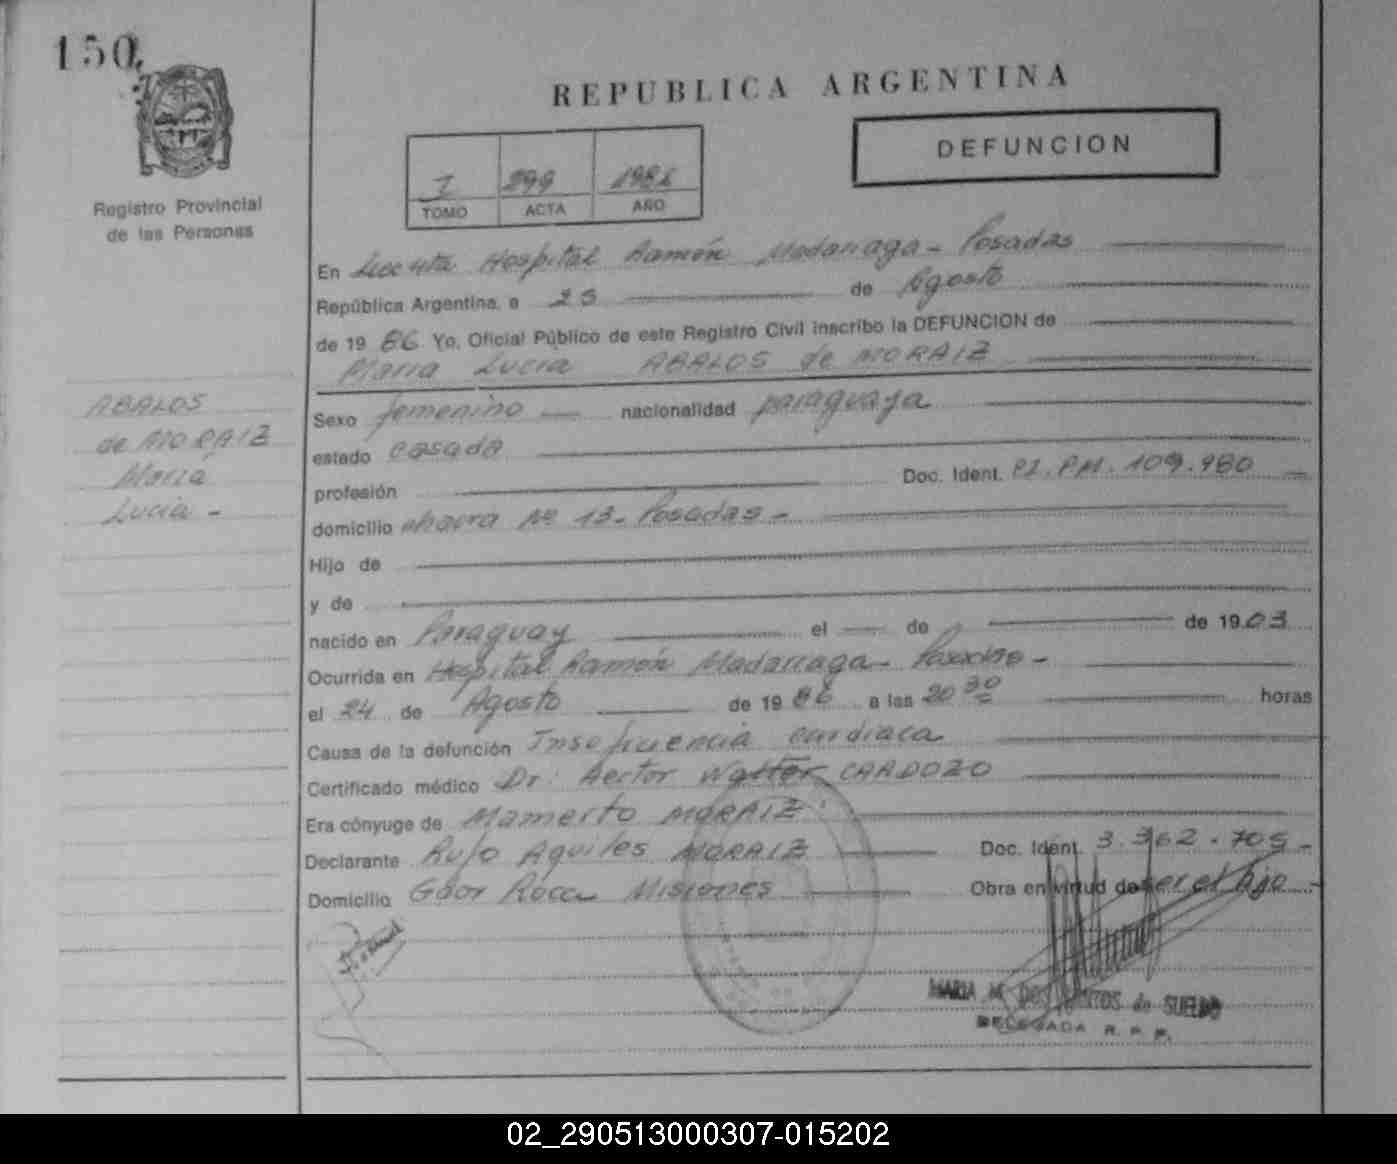 150
REPUBLICA ARGENTINA
DEFUNCION
I 299 1986
TOMO ACTA AÑO
Registro Provincial
de las Personas
En Hospital Ramón Madariaga - Posadas
República Argentina, a 25 de Agosto
de 19 86 Yo, Oficial Público de este Registro Civil inscribo la DEFUNCION de
Maria Lucia ABALOS de MORAIZ
ABALOS
de MORAIZ
Maria
Lucia -
Sexo femenino nacionalidad paraguaya
estado casada
profesión Doc. Ident. CI. PM. 109.980
domicilio chacra Nº 13 - Posadas -
Hijo de
y de
nacido en Paraguay el de de 1903
Ocurrida en Hospital Ramón Madariaga - Posadas -
el 24 de Agosto de 19 86 a las 20 30 horas
Causa de la defunción Insuficiencia cardiaca
Certificado médico Dr. Hector Walter CARDOZO
Era cónyuge de Mamerto MORAIZ
Declarante Rufo Aquiles MORAIZ Doc. Ident. 3.362.705 -
Domicilio Gdor Roca Misiones Obra en virtud de ser el hijo
MARIA M. DOS SANTOS de SUELDO
DELEGADA R. P. P.
02_290513000307-015202